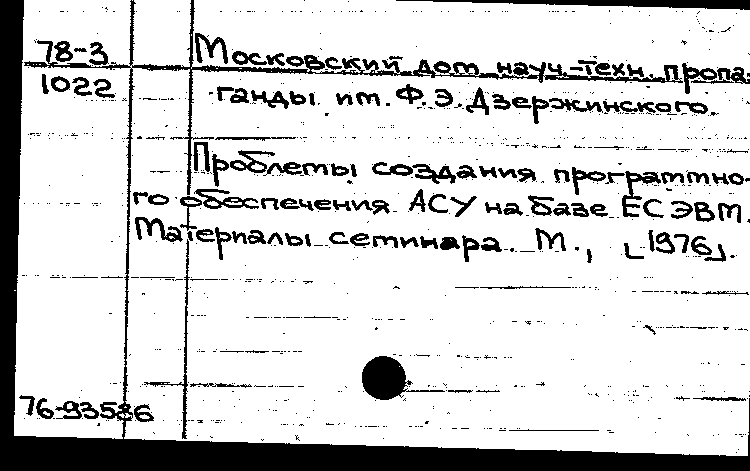 78-3 Московский дом науч.-техн. пропа-
1022 ганды им. Ф.Э.Дзержинского.
Проблемы создания программно-
го обеспечения АСУ на базе ЕС ЭВМ.
Материалы семинара. М., [1976].
76-93586